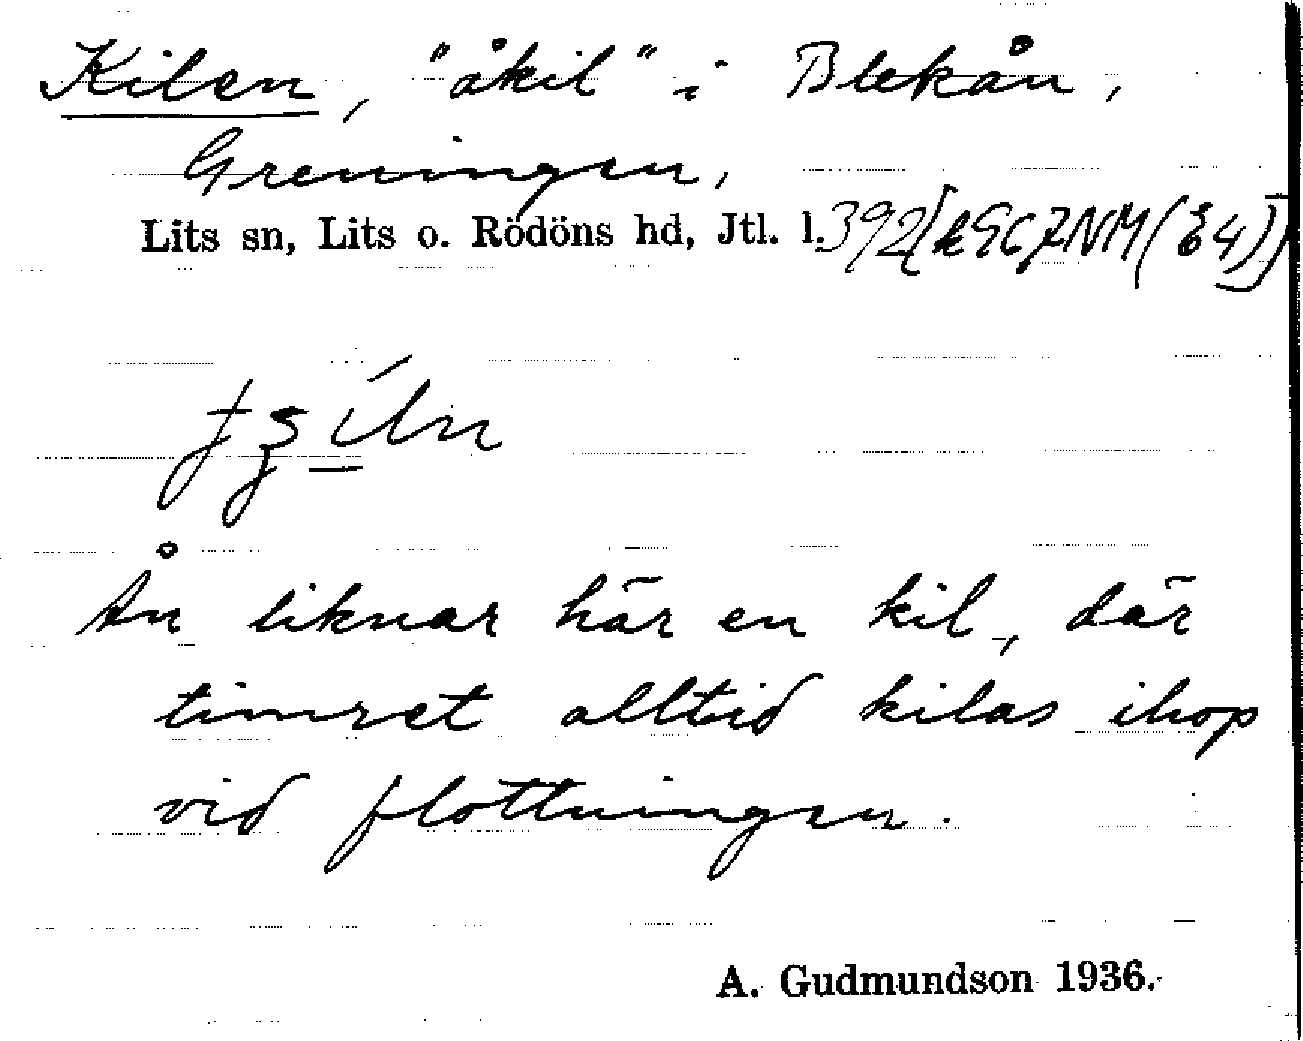 Kilen, "åkil" i Blekån,
Greningen,
Lits sn, Lits o. Rödöns hd, Jtl. l. 392
Ån liknar här en kil, där
timret alltid kilas ihop
vid flottningen.
A. Gudmundson 1936.